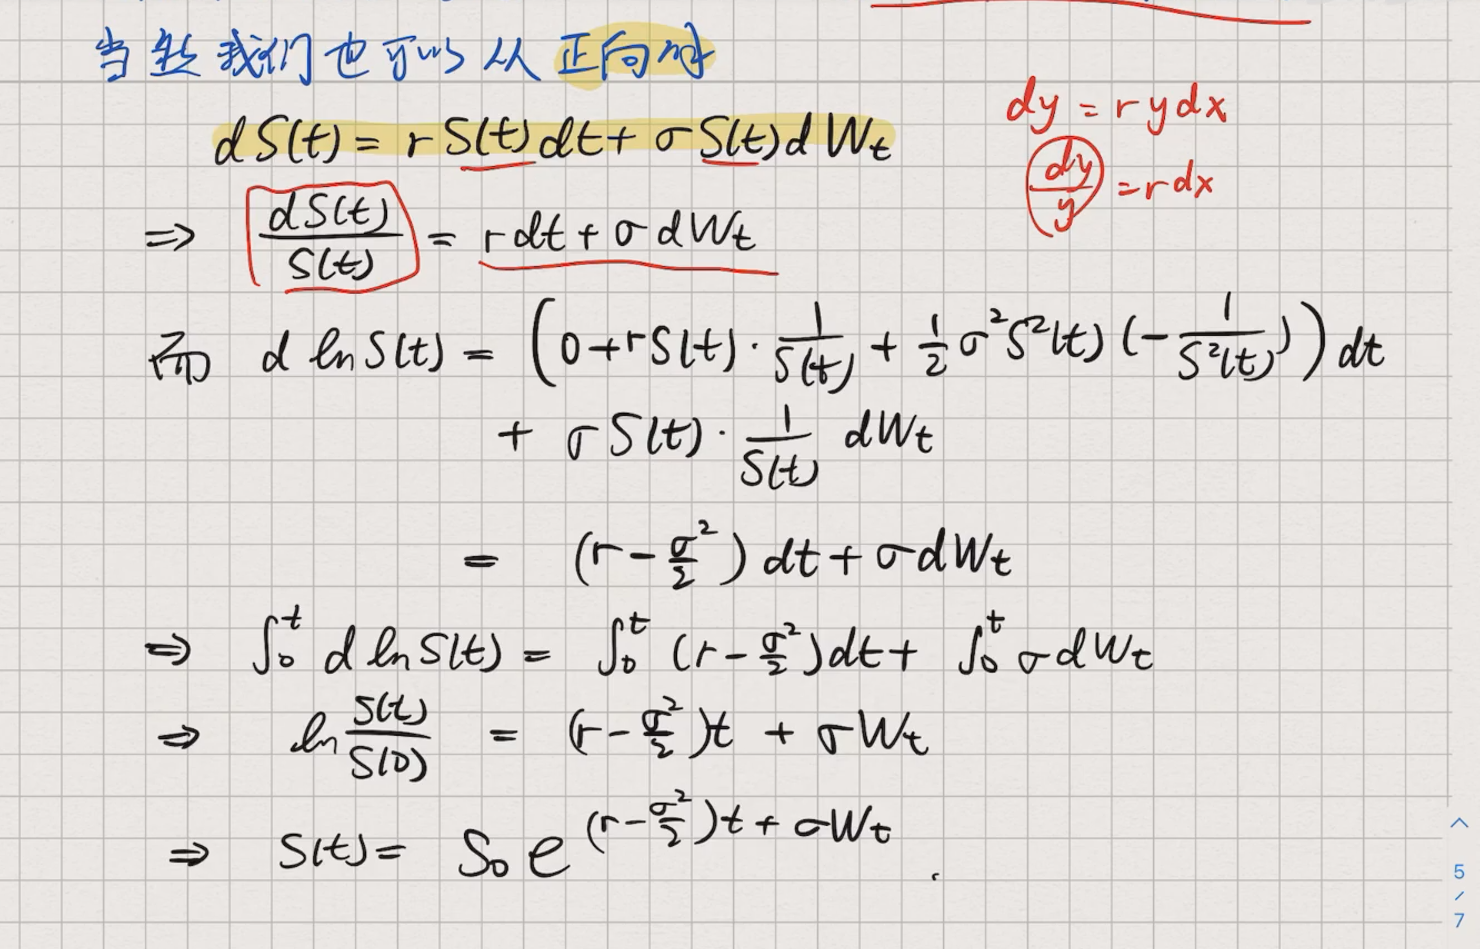 当然我们也可以从正向解
dS(t) = rS(t)dt + σS(t)dWₜ
dy = rydx
dy/y = rdx
⇒ dS(t)/S(t) = rdt + σdWₜ
而 d ln S(t) = (0 + rS(t)·1/S(t) + 1/2 σ²S²(t)(-1/S²(t)))dt
+ σS(t)·1/S(t) dWₜ
= (r - σ²/2)dt + σdWₜ
⇒ ∫₀ᵗ d ln S(t) = ∫₀ᵗ (r - σ²/2)dt + ∫₀ᵗ σdWₜ
⇒ ln S(t)/S(0) = (r - σ²/2)t + σWₜ
⇒ S(t) = S₀ e^((r - σ²/2)t + σWₜ)
5
/
7